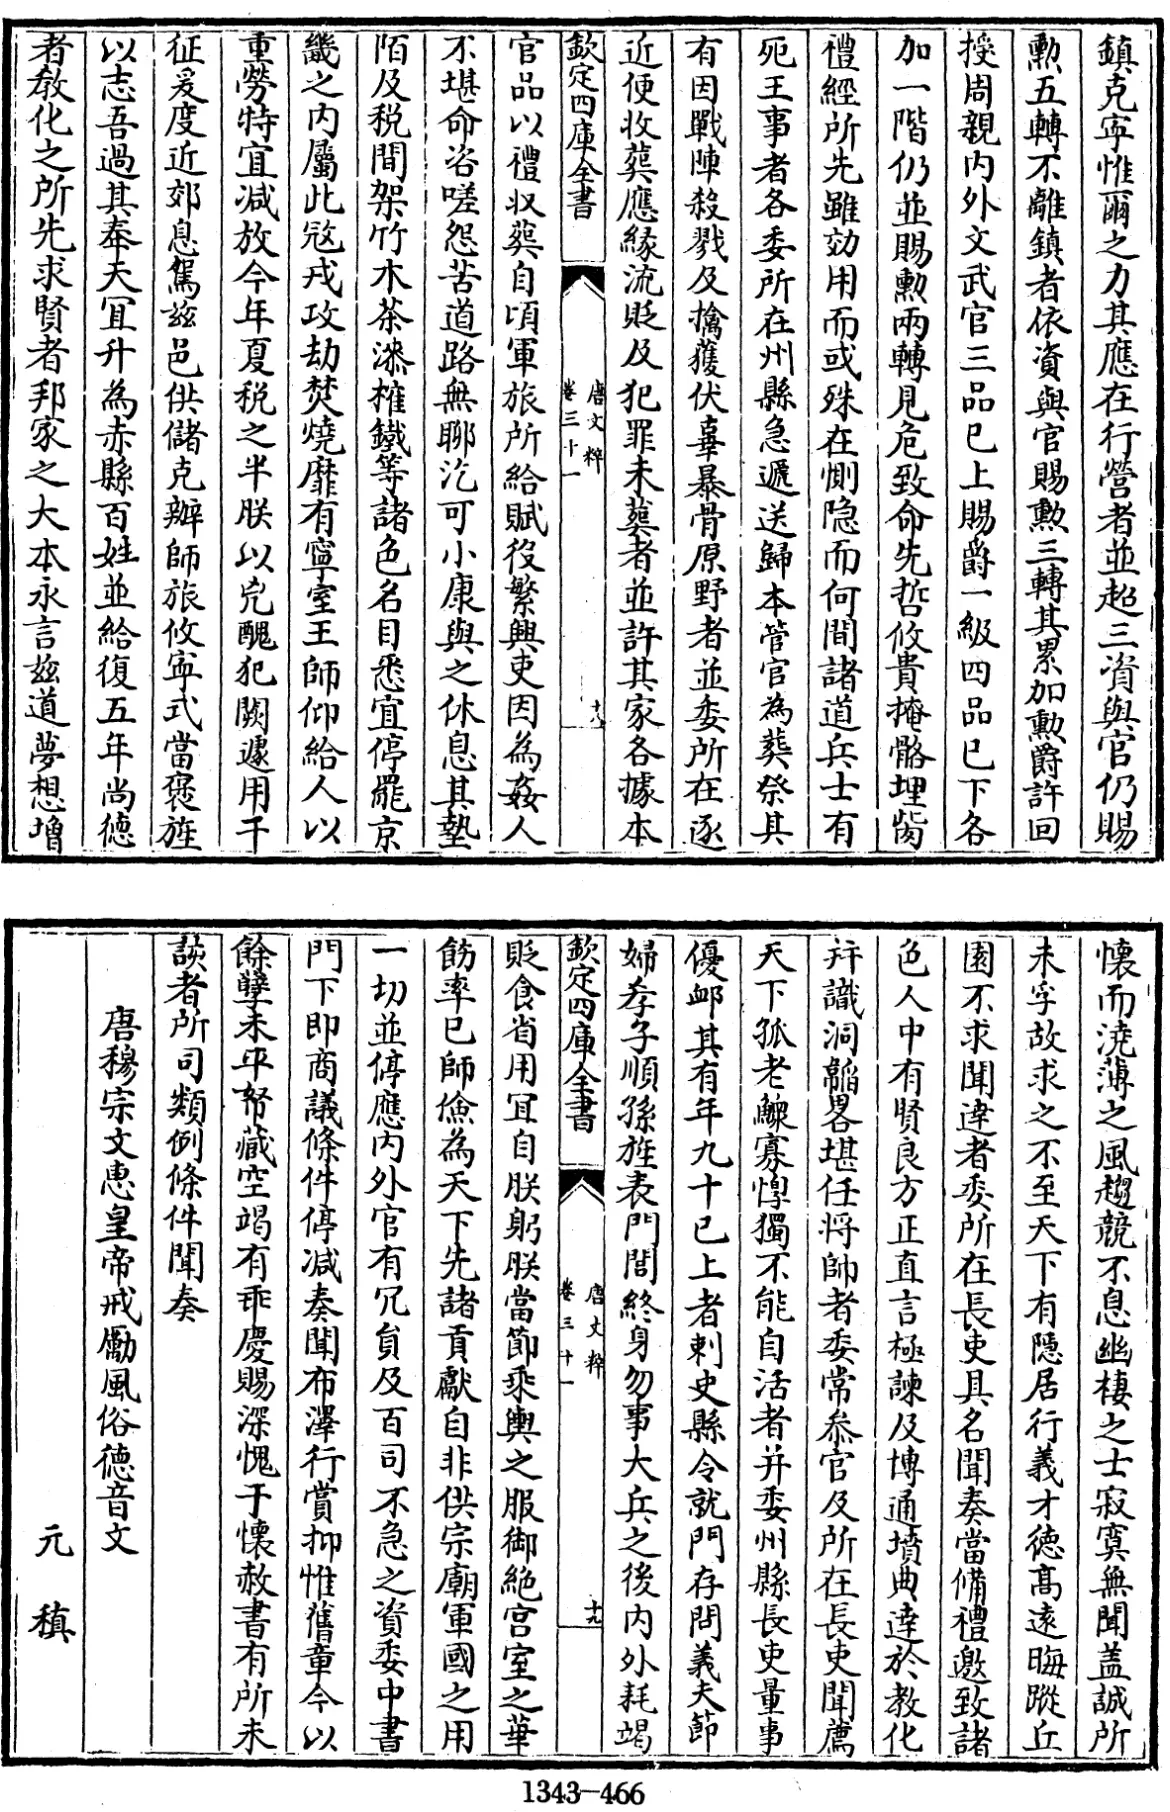 鎮克寧惟爾之力其應在行營者並超三資與官仍賜
勲五轉不離鎮者依資與官賜勲三轉其累加勲爵許回
授周親内外文武官三品已上賜爵一級四品已下各
加一階仍並賜勲兩轉見危致命先哲攸貴掩骼埋胔
禮經所先雖効用而或殊在惻隐而何間諸道兵士有
死王事者各委所在州縣急遞送歸本管官為葬祭其
有因戰陣殺戮及擒獲伏辜暴骨原野者並委所在逐
近便收葬應緣流貶及犯罪未葬者並許其家各據本
欽定四庫全書
唐文粹
卷三十一
十八
官品以禮収葬自頃軍旅所給賦役繁興吏因為姦人
不堪命咨嗟怨苦道路無聊汔可小康與之休息其墊
陌及税間架竹木茶漆榷鐵等諸色名目悉宜停罷京
畿之内屬此冦戎攻劫焚燒靡有寧室王師仰給人以
重勞特宜减放今年夏税之半朕以兇醜犯闕遽用干
征爰度近郊息駕兹邑供儲克辦師旅攸寧式當褒旌
以志吾過其奉天冝升為赤縣百姓並給復五年尚德
者教化之所先求賢者邦家之大本永言兹道夢想增
懷而澆薄之風趨競不息幽棲之士寂寞無聞盖誠所
未孚故求之不至天下有隠居行義才徳髙遠晦蹤丘
園不求聞達者委所在長吏具名聞奏當備禮邀致諸
色人中有賢良方正直言極諫及博通墳典達於教化
并識洞韜畧堪任将帥者委常叅官及所在長吏聞薦
天下孤老鰥寡惸獨不能自活者并委州縣長吏量事
優䘏其有年九十已上者刺史縣令就門存問義夫節
婦孝子順孫旌表門閭終身勿事大兵之後内外耗竭
欽定四庫全書
唐文粹
卷三十一
十九
貶食省用冝自朕躬朕當節乘輿之服御絶宫室之華
飭率已師儉為天下先諸貢獻自非供宗廟軍國之用
一切並停應内外官有冗負及百司不急之資委中書
門下即商議條件停减奏聞布澤行賞抑惟舊章今以
餘孽未平帑藏空竭有乖慶賜深愧于懷赦書有所未
該者所司類例條件聞奏
唐穆宗文惠皇帝戒勵風俗德音文
元稹
1343-466